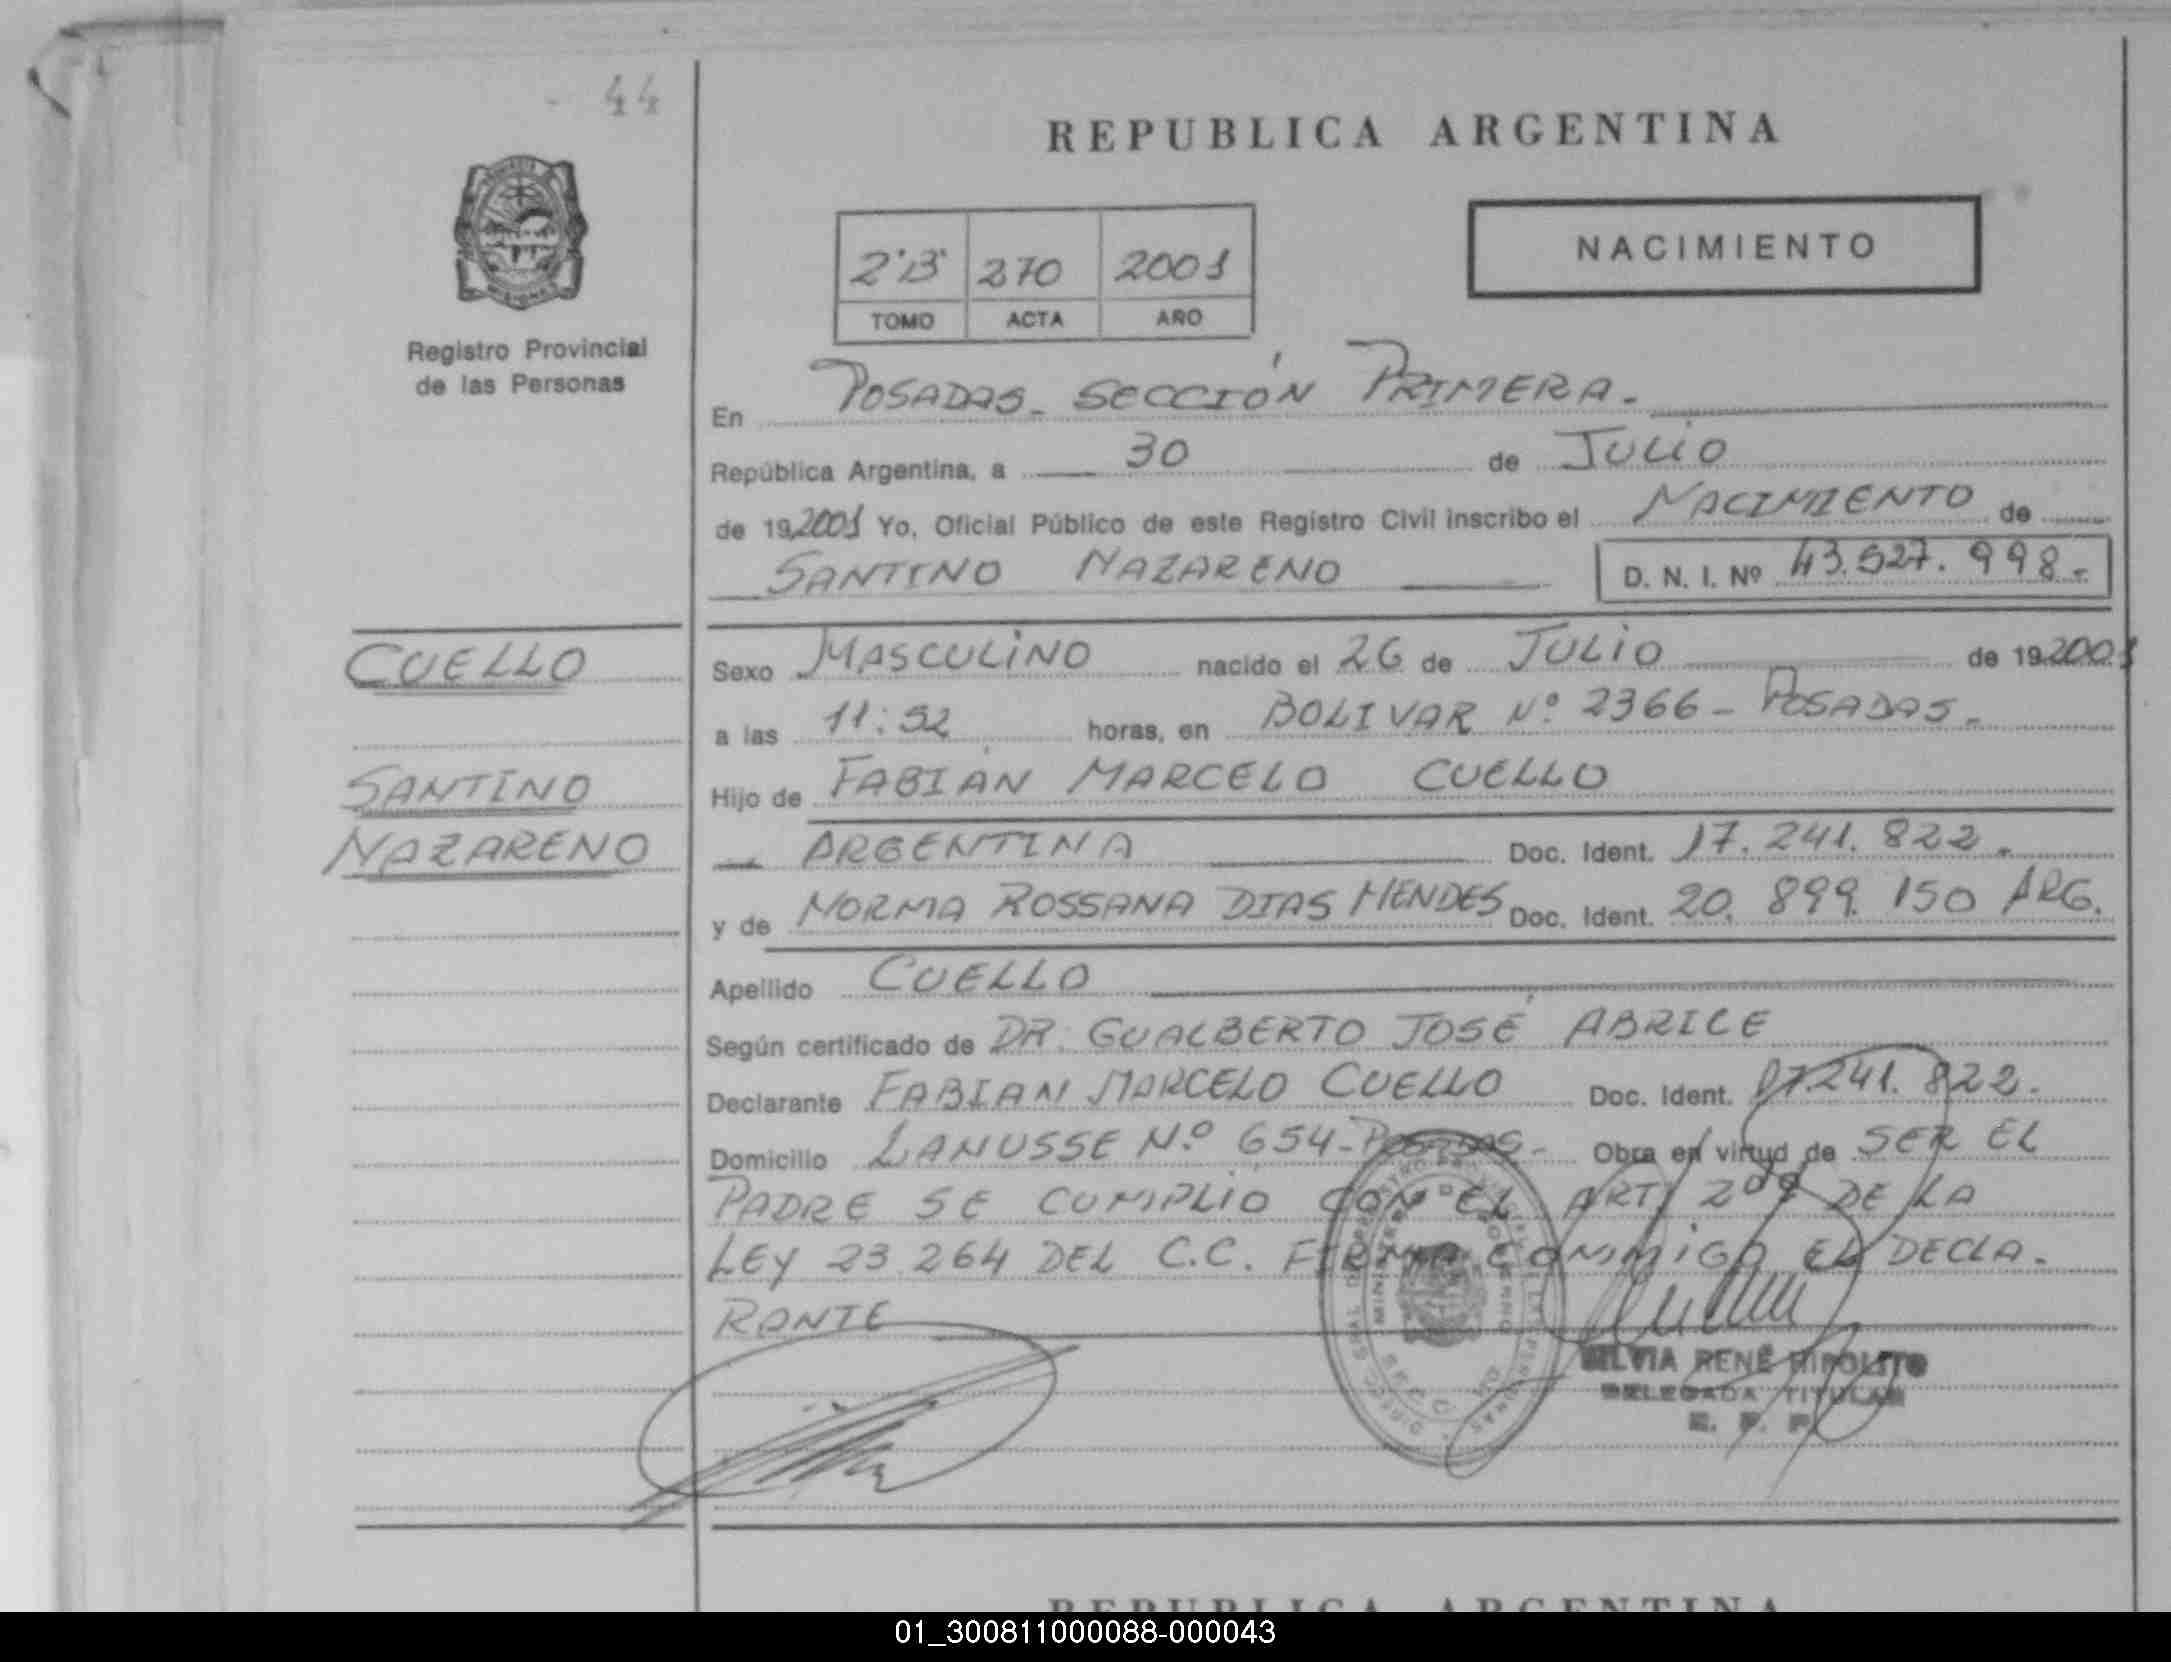 44
REPUBLICA ARGENTINA
2"B" 270 2001
TOMO ACTA AÑO
NACIMIENTO
MISIONES
Registro Provincial
de las Personas
En POSADAS - SECCIÓN PRIMERA.-
República Argentina, a 30 de JULIO
de 19 2001 Yo, Oficial Público de este Registro Civil inscribo el NACIMIENTO de
SANTINO NAZARENO D. N. I. Nº 43.527.998.-
CUELLO
Sexo MASCULINO nacido el 26 de JULIO de 19 2001
a las 11:52 horas, en BOLIVAR Nº 2366 - POSADAS.-
SANTINO
Hijo de FABIÁN MARCELO CUELLO
NAZARENO
ARGENTINA Doc. Ident. 17.241.822.-
y de NORMA ROSSANA DIAS MENDES Doc. Ident. 20.899.150 ARG.
Apellido CUELLO
Según certificado de DR. GUALBERTO JOSÉ ABRICE
Declarante FABIAN MARCELO CUELLO Doc. Ident. 17.241.822.
Domicilio LANUSSE Nº 654 - POSADAS - Obra en virtud de SER EL
PADRE SE CUMPLIÓ CON EL ART. 2º DE LA
LEY 23.264 DEL C.C. FIRMA CONMIGO EL DECLA-
RANTE
SILVIA RENÉ HIPOLITO
DELEGADA TITULAR
REPUBLICA ARGENTINA
01_300811000088-000043